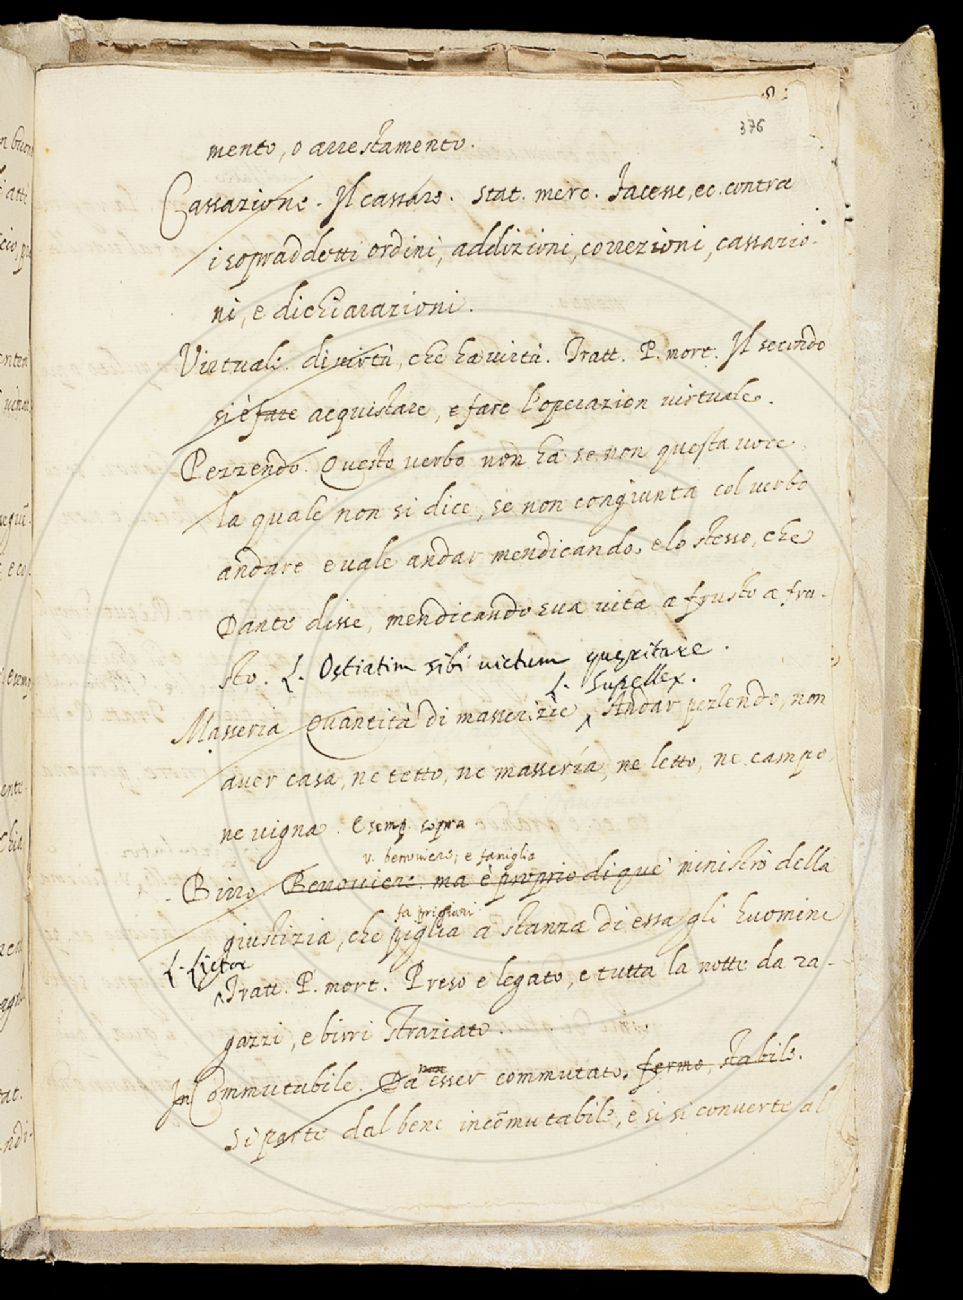 376
mento, o arrestamento.
Cassazione. Il cassare. Stat. merc. facesse, ec. contra
i sopraddetti ordini, addizioni, correzioni, cassazio-
ni, e dichiarazioni.
Virtuale. di virtù, che ha virtù. Tratt. P. mort. Il secondo
si è fare acquistare, e fare l'operazion virtuale.
Pezzendo. Questo verbo non ha se non questa voce
la quale non si dice, se non congiunta col verbo
andare e vale andar mendicando, e lo stesso, che
Dante disse, mendicando sua vita a frusto a fru-
sto. L. Ostiatim sibi victum queritare.
L. Supellex.
Masseria Quantità di masserizie, Andar pezzendo, non
aver casa, ne tetto, ne masseria, ne letto, ne campo,
ne vigna. Esemp. sopra
v. berroviere, e famiglio
Birro Berroviere. ma è proprio di que' ministri della
fa prigioni
giustizia, che piglia a stanza di essa gli huomini
L. Lictor
Tratt. P. mort. Preso e legato, e tutta la notte da ra-
gazzi, e birri straziato.
non
Incommutabile. Da esser commutato, fermo, stabile.
Si parte dal bene incõmutabile, e si si converte al